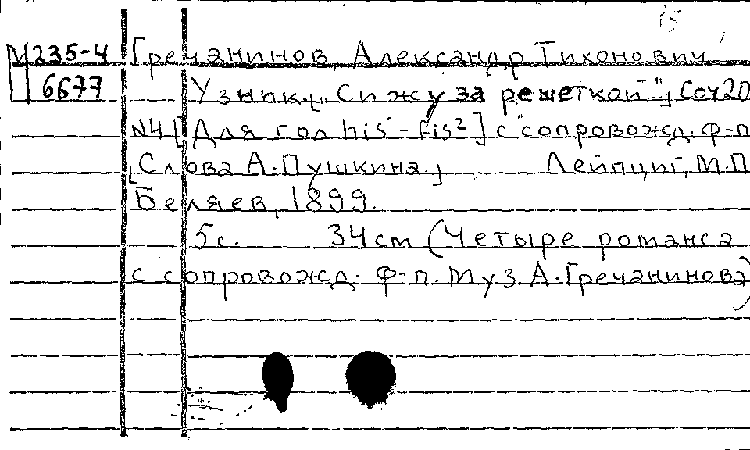 15
М 235-4 Гречанинов, Александр Тихонович
6677 Узник „Сижу за решеткой", Соч 20
N4 [Для гол his - fis²] с сопровожд. ф-п
[Слова А. Пушкина] Лейпциг, М.П.
Беляев, 1899.
5с. 34 см (Четыре романса
с сопровожд. ф-п. Муз. А. Гречанинова)